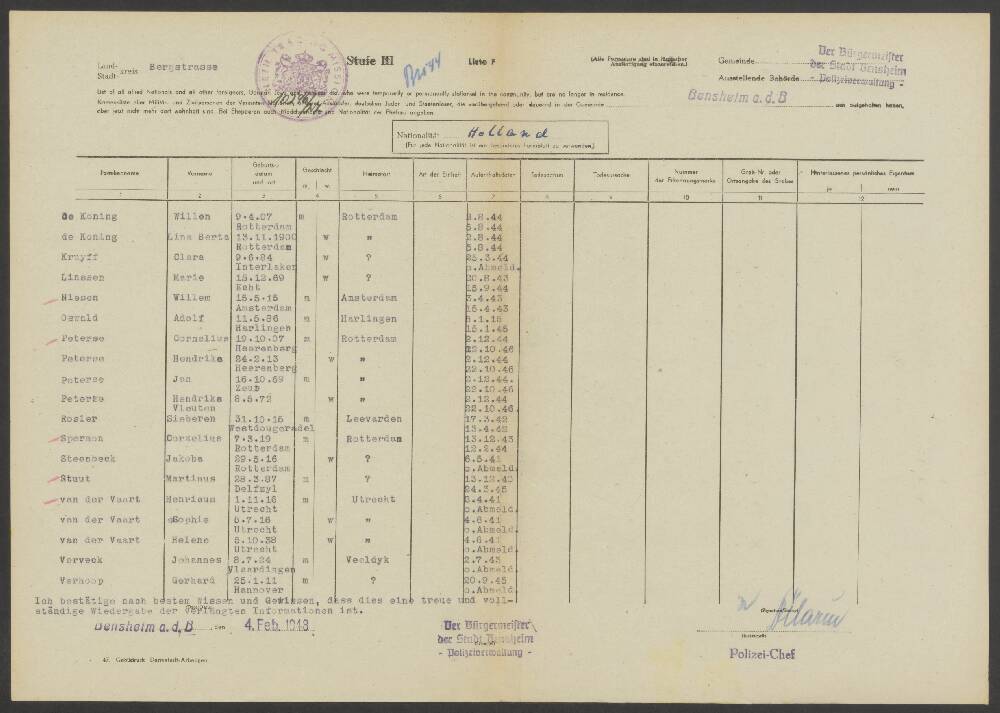 Land-
Stadt- kreis Bergstrasse
Stufe III
Liste F
Gemeinde
Ausstellende Behörde
Der Bürgermeister
der Stadt Bensheim
- Polizeiverwaltung -
Bensheim a.d.B
List of all allied Nationals and other foreigners, who were temporarily or permanently stationed in the community, but are no longer in residence.
aufgehalten haben,
Nationalität: Holland
(Für jede Nationalität ist ein besonderes Formblatt zu verwenden)
Familienname Vorname Geburtsdatum und -ort Geschlecht m. w. Heimatort Art der Einheit Aufenthaltsdaten Todesdatum Todesursache Nummer der Erkennungsmarke Grab-Nr. oder Ortsangabe des Grabes Hinterlassenes persönliches Eigentum ja nein
1 2 3 4 5 6 7 8 9 10 11 12
de Koning Willem 9.4.07 m Rotterdam 2.8.44
Rotterdam 5.8.44
de Koning Lina Berta 13.11.1900 w " 2.8.44
Rotterdam 5.8.44
Kruyff Clara 9.6.84 w ? 25.3.44
Interlaken o.Abmeld.
Linssen Marie 15.12.69 w ? 20.8.43
Echt 15.9.44
Niesen Willem 15.5.15 m Amsterdam 3.4.43
Amsterdam 15.4.43
Oswald Adolf 11.5.86 m Harlingen 5.1.15
Harlingen 15.1.45
Peterse Cornelius 19.10.07 m Rotterdam 2.12.44
Heerenberg 22.10.46
Peterse Hendrika 24.2.13 w " 2.12.44
Heerenberg 22.10.46
Peterse Jan 16.10.69 m " 2.12.44.
22.10.46
Peterse Hendrika 8.5.72 w " 2.12.44
Vleuten 22.10.46
Rosier Sieberen 31.10.15 m Leevarden 17.3.42
Westdougeradel 13.4.42
Spermon Cornelius 7.3.19 m Rotterdam 13.12.43
Rotterdam 12.2.44
Steenbeck Jakoba 29.5.16 w ? 6.5.41
Rotterdam o.Abmeld.
Stuut Martinus 28.3.87 m ? 13.12.43
Delfzyl 24.3.45
van der Vaart Henricus 1.11.16 m Utrecht 3.4.41
Utrecht o.Abmeld.
van der Vaart Sophie 5.7.16 w " 4.6.41
Utrecht o.Abmeld.
van der Vaart Helene 5.10.38 w " 4.6.41
Utrecht o.Abmeld.
Verveck Johannes 8.7.24 m Veeldyk 2.7.43
Vlaardingen o.Abmeld.
Verhoop Gerhard 25.1.11 m ? 20.9.45
Hannover o.Abmeld.
Ich bestätige nach bestem Wissen und Gewissen, dass dies eine treue und voll-
ständige Wiedergabe der verlangten Informationen ist.
Bensheim a.d.B, den 4. Feb. 1948
Der Bürgermeister
der Stadt Bensheim
- Polizeiverwaltung -
Polizei-Chef